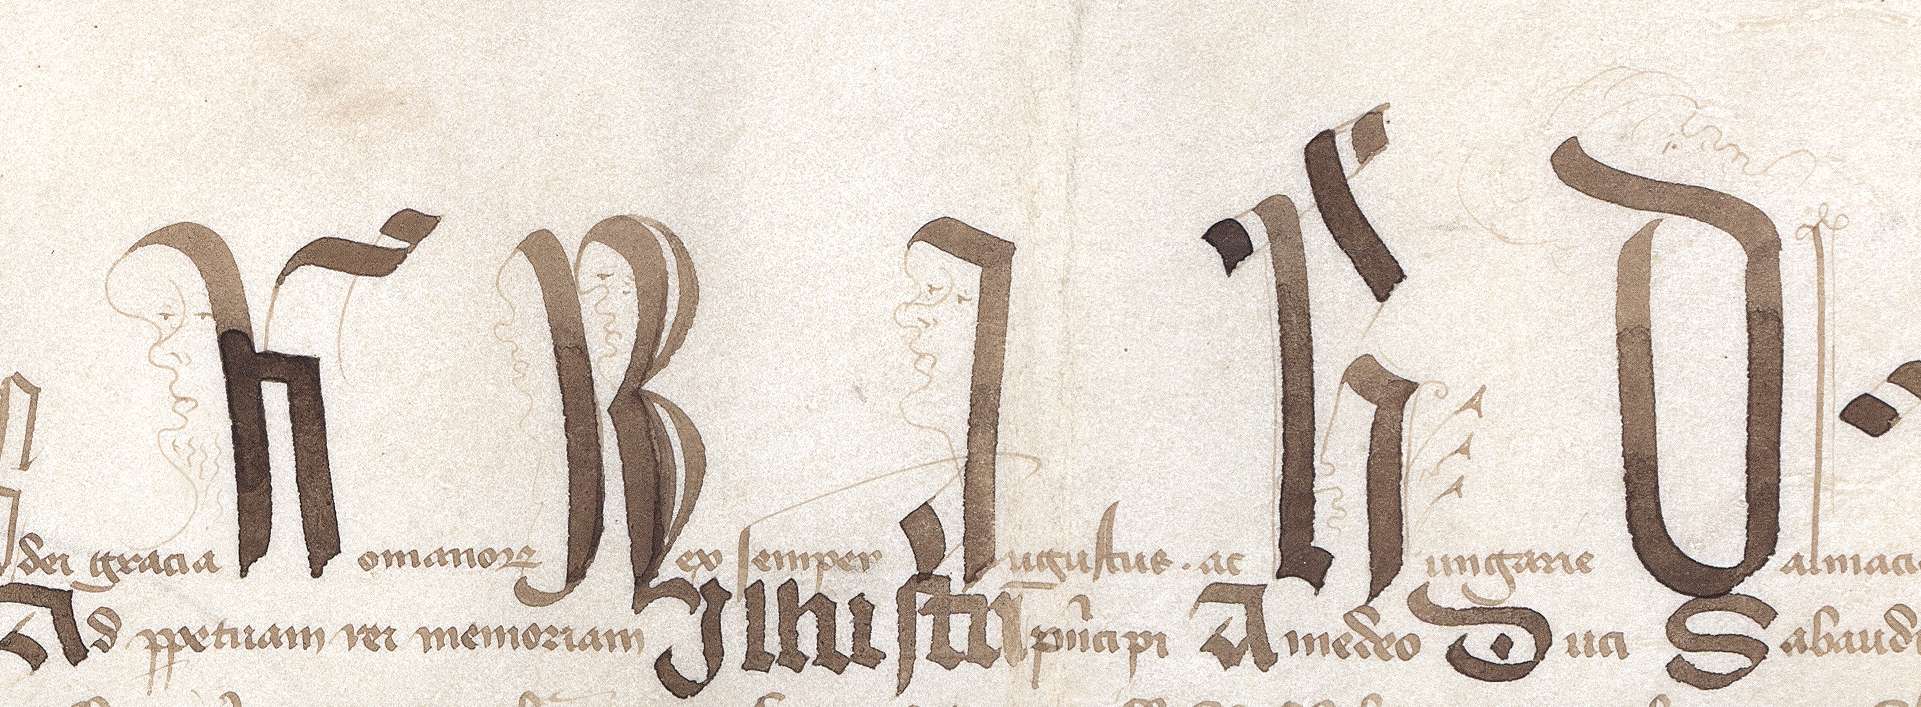 dei gracia Romanorum Rex semper Augustus . ac Hungarie Dalmacie
Ad perpetuam rei memoriam Illustri principi Amedeo Duci Sabaudie